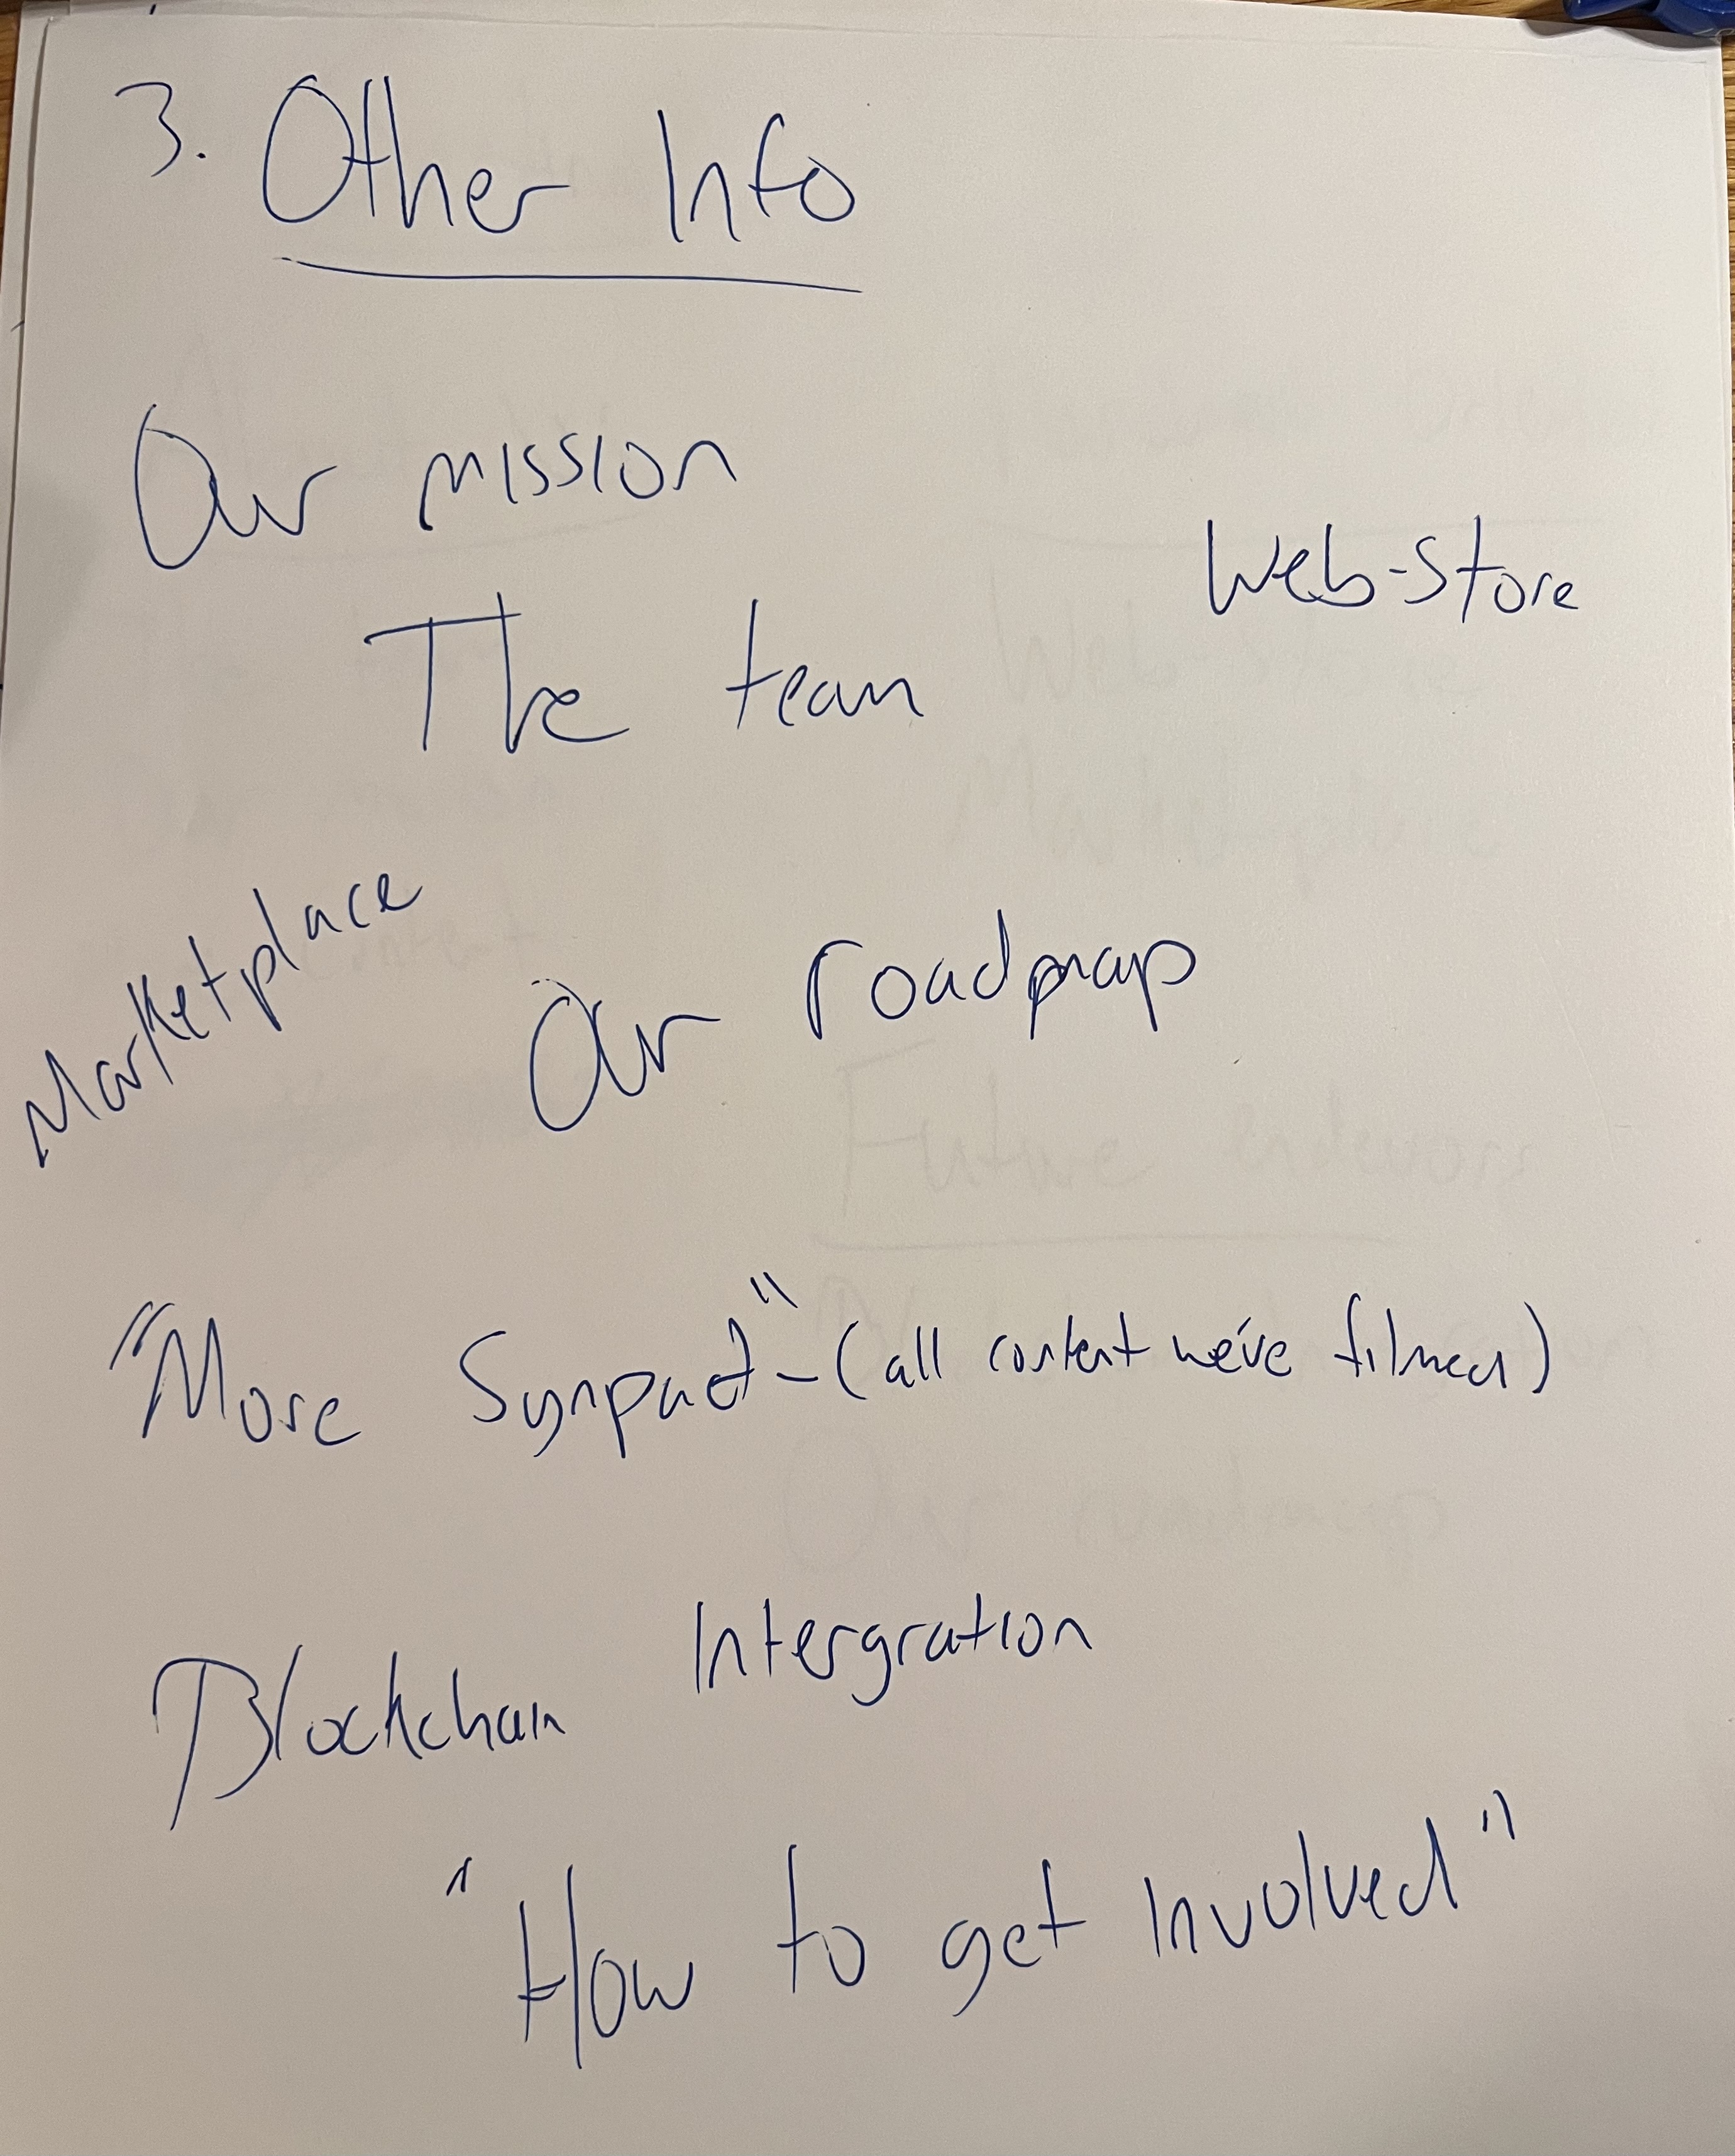 3. Other Info
Our mission
Web-Store
The team
Marketplace
Our roadmap
"More Synpact" - (all content we've filmed)
Blockchain Intergration
"How to get involved"